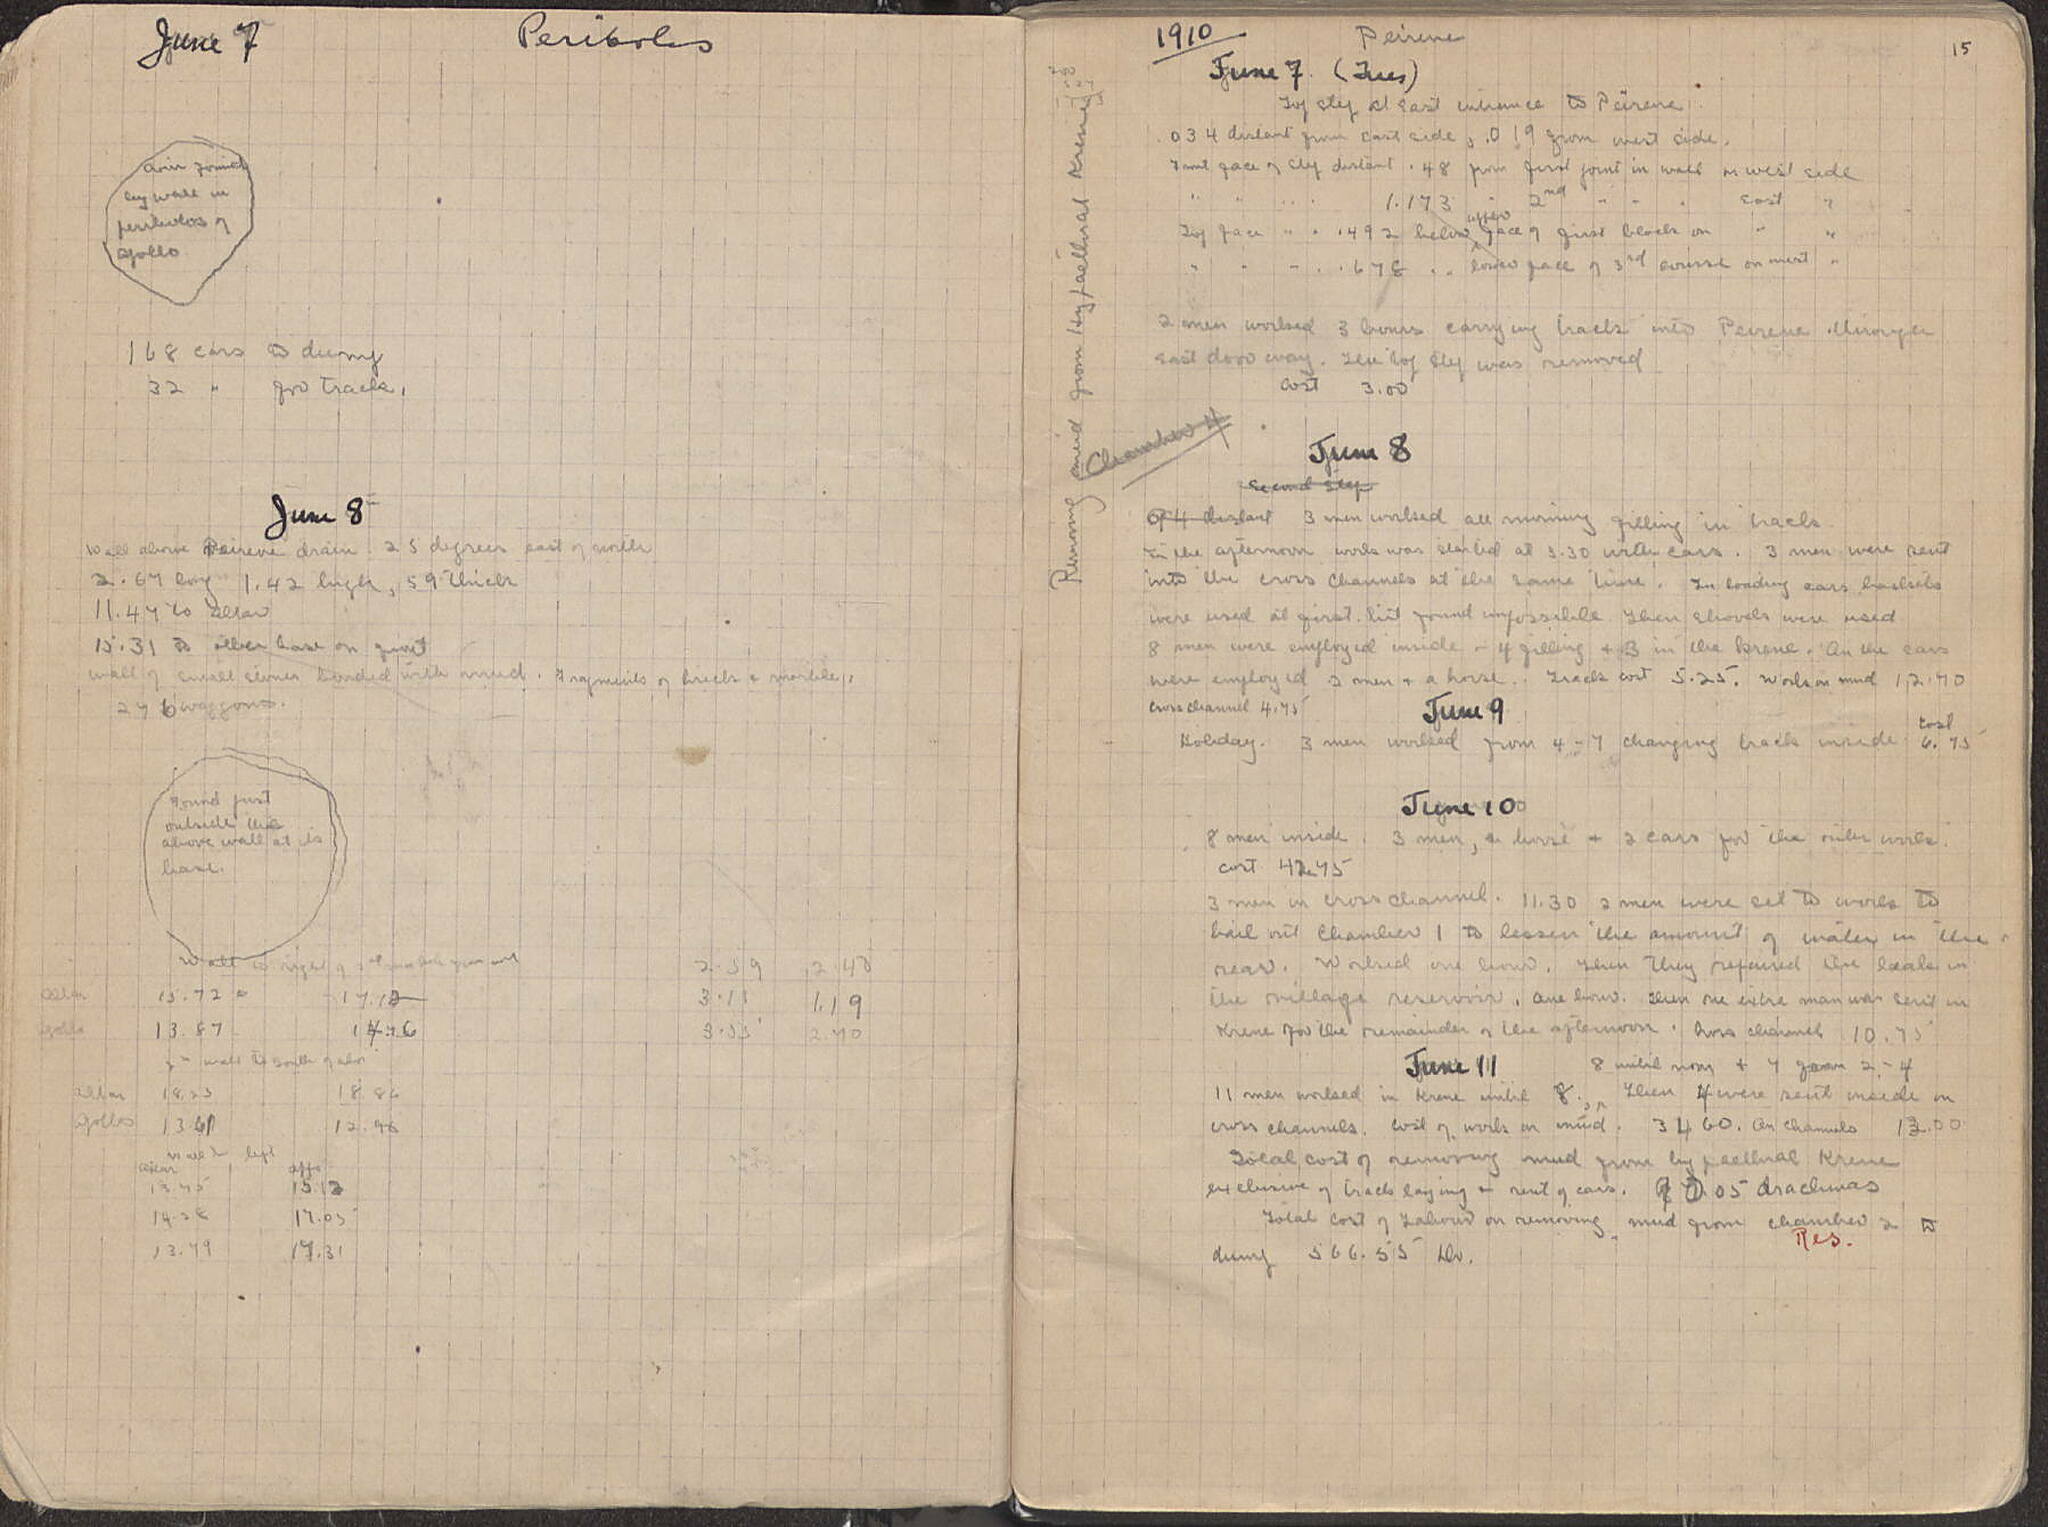 June 7 Peribolos
coin found
by wall in
peribolos of
Apollo
168 cars to dump
32 " for track.
June 8
Wall above Peirene drain. 25 degrees east of north
2.67 long 1.42 high, 59 thick
11.47 to altar
15.31 to other base on
wall of small stones bonded with mud. Fragments of brick & marble.
276 waggons.
Found just
outside the
above wall at its
base.
Wall to right of
2.59 2.40
altar 15.72
3.11 1.19
Apollo 13.87
3.35 2.70
wall to south of
altar 18.23 18.86
Apollo 13.61 12.96
wall left
13.75 15.12
14.28 17.05
13.79 17.31
1910 Peirene 15
June 7. (Tues)
Top step at East entrance to Peirene.
.034 distant from east side, .019 from west side.
Front face of step distant .48 from first joint in wall on west side
" " " " 1.173 " 2nd " " " east "
Top face " " .492 below upper face of first block on " "
" " " .678 " lower face of 3rd course on west "
2 men worked 3 hours carrying track into Peirene through
east doorway. The top step was removed
Cost 3.00
Removing mud from Hypaethral Krene
Chamber 4
June 8
Second Step
04 distant 3 men worked all morning filling in track.
In the afternoon work was started at 3.30 with cars. 3 men were sent
into the cross channels at the same time. In loading cars baskets
were used at first but found impossible. Then shovels were used
8 men were employed inside - 4 filling + 3 in the Krene. On the cars
were employed 2 men + a horse. Track cost 5.25. Work on mud 12.70
cross channel 4.75
June 9
Holiday. 3 men worked from 4-7 changing track inside cost 6.75
June 10
8 men inside. 3 men, a horse + 2 cars for the outer work.
cost 42.75
3 men in cross channel. 11.30 2 men were set to work to
bail out Chamber 1 to lessen the amount of water in the
rear. Worked one hour. Then they repaired the leak in
the village reservoir. One hour. Then one extra man was sent in
Krene for the remainder of the afternoon. Cross channel 10.75
June 11 8 until noon + 7 from 2-4
11 men worked in Krene until 8. Then 4 were sent inside in
cross channels. Cost of work on mud. 34.60. On channels 13.00
Total cost of removing mud from hypaethral Krene
exclusive of track laying + rent of cars. 90.05 drachmas
Total cost of Labour on removing mud from chamber 2 to
Res.
dump 566.55 Dr.